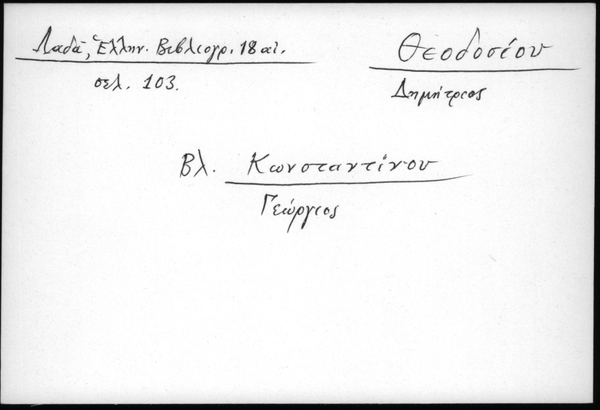 Λαδᾶ, Ἑλλην. Βιβλιογρ. 18 αἰ.
σελ. 103.
Θεοδοσίου
Δημήτριος
Βλ. Κωνσταντίνου
Γεώργιος